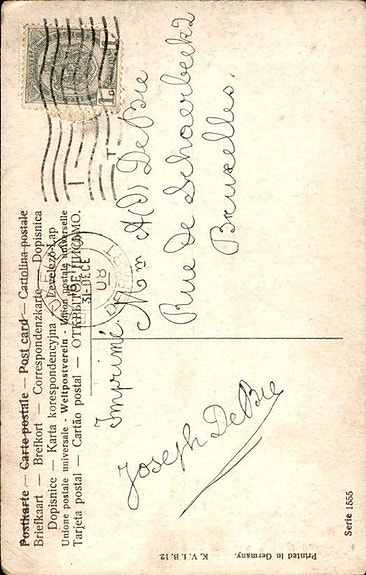 Postkarte — Carte postale — Post card — Cartolina postale
Briefkaart — Brefkort — Correspondenzkarte — Dopisnica
Dopisnice — Karta korespondencyjna — Levelező-Lap
Unione postale universale - Weltpostverein - Union postale universelle
Tarjeta postal — Cartão postal — ОТКРЫТОЕ ПИСЬМО.
31 DECE
08
Imprimé
A(D) De Bie
Rue De Schaerbeek 2
Bruxelles.
Joseph De Bie
Printed in Germany.
K. V. i. B. 12.
Serie 1555